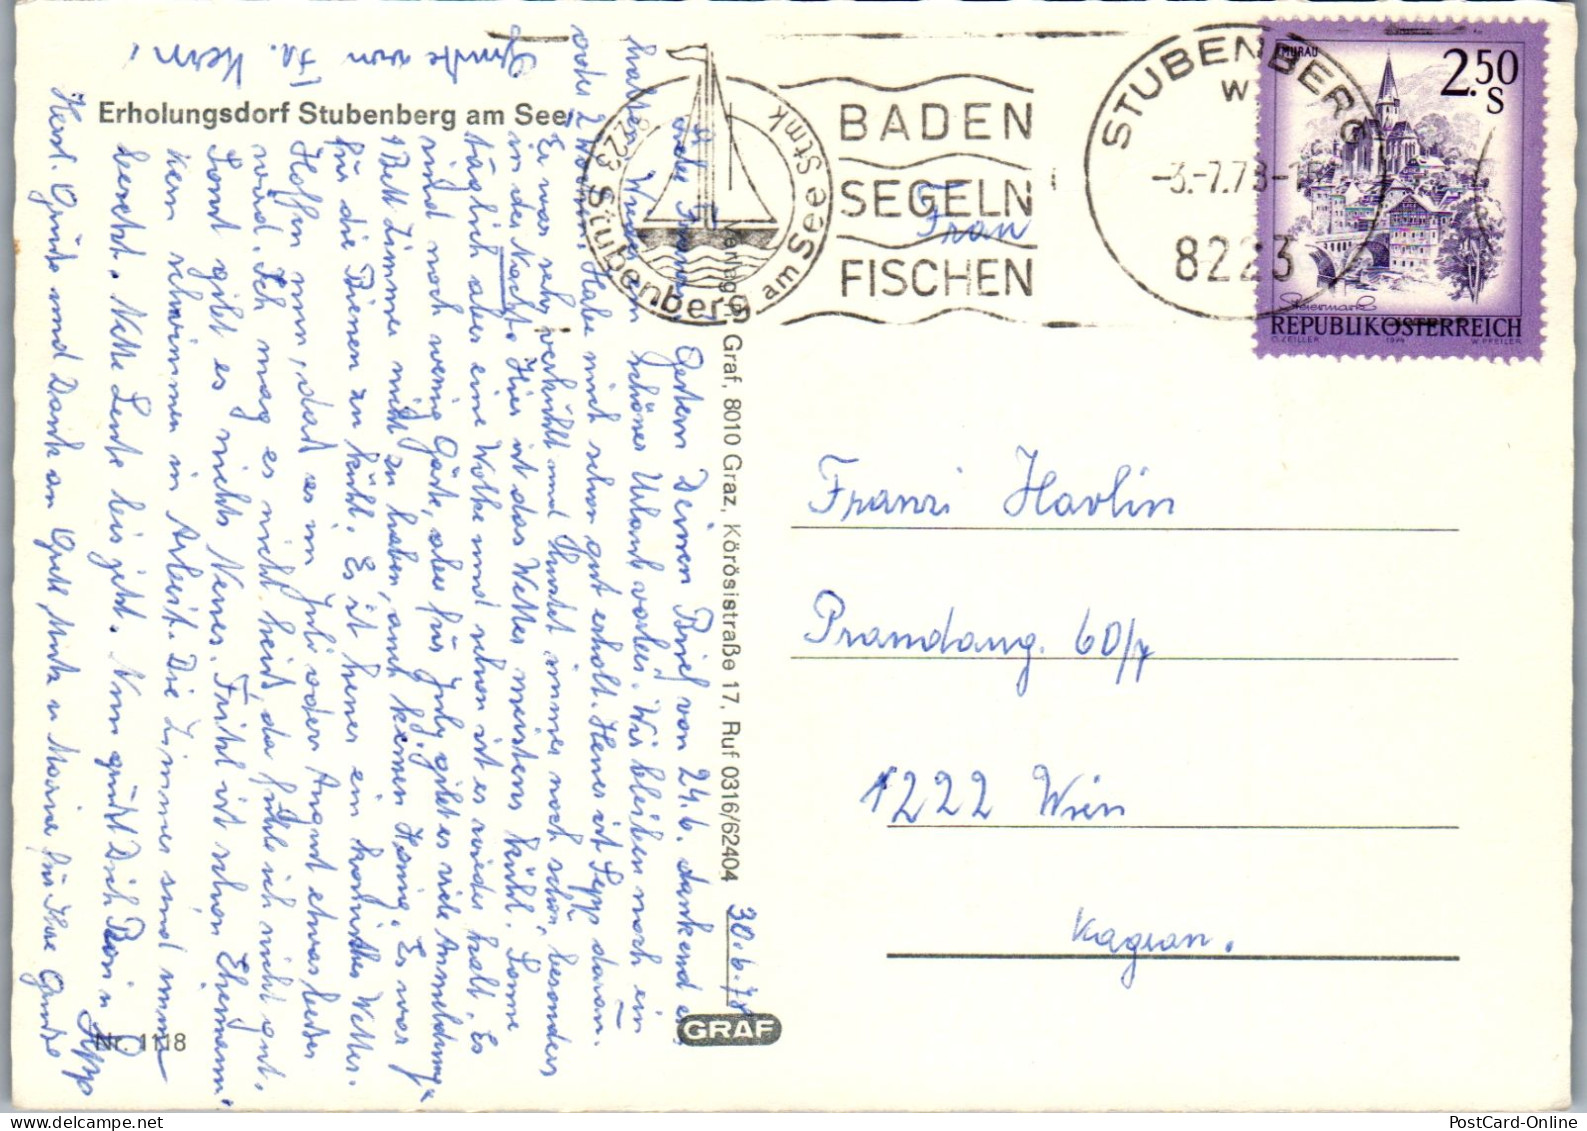 Erholungsdorf Stubenberg am See
8223 Stubenberg am See Stmk
BADEN
SEGELN
FISCHEN
STUBENBERG
W
-3.-7.78-
8223
MURAU
2.50
S
Steiermark
REPUBLIK ÖSTERREICH
O. ZEILLER 1974 W. PFEILER
Frau
Franzi Havlin
Prandaug. 60/7
1222 Wien
Kagran.
Verlag Graf, 8010 Graz, Körösistraße 17, Ruf 0316/62404
GRAF
Nr. 1118
30.6.78
Gestern Deinen Brief von 24.6. dankend
schöner Urlaub vorbei. Wir bleiben noch ein
oder 2 Wochen. Habe mich schon gut erholt. Heuer ist Sepp daran.
Er war sehr verkühlt und hustet immer noch schön, besonders
in der Nacht. Hier ist das Wetter meistens kühl. Sonne
täglich aber eine Wolke und schon ist es wieder kalt. Es
sind noch wenig Gäste, aber für July gibt es viele Anmeldung.
1 Bett Zimmer nicht zu haben, auch keinen Honig. Es war
für die Bienen zu kühl. Es ist heuer ein komisches Wetter.
Hoffen nun, dass es im Juli oder August etwas besser
wird. Ich mag es nicht heiß, da fühle ich nicht gut.
Sonst gibt es nichts Neues. Fritzl ist schon Ehemann.
Kern schwimmen in Arbeit. Die Zimmer sind immer
besetzt. Nette Leute bis jetzt. Nun grüßt Dich Resi u Sepp
Herzl. Grüße und Dank an Gretl, Mitzi u Maria für Ihre Grüße
Grüße von Fa. Kern!
PostCard-Online